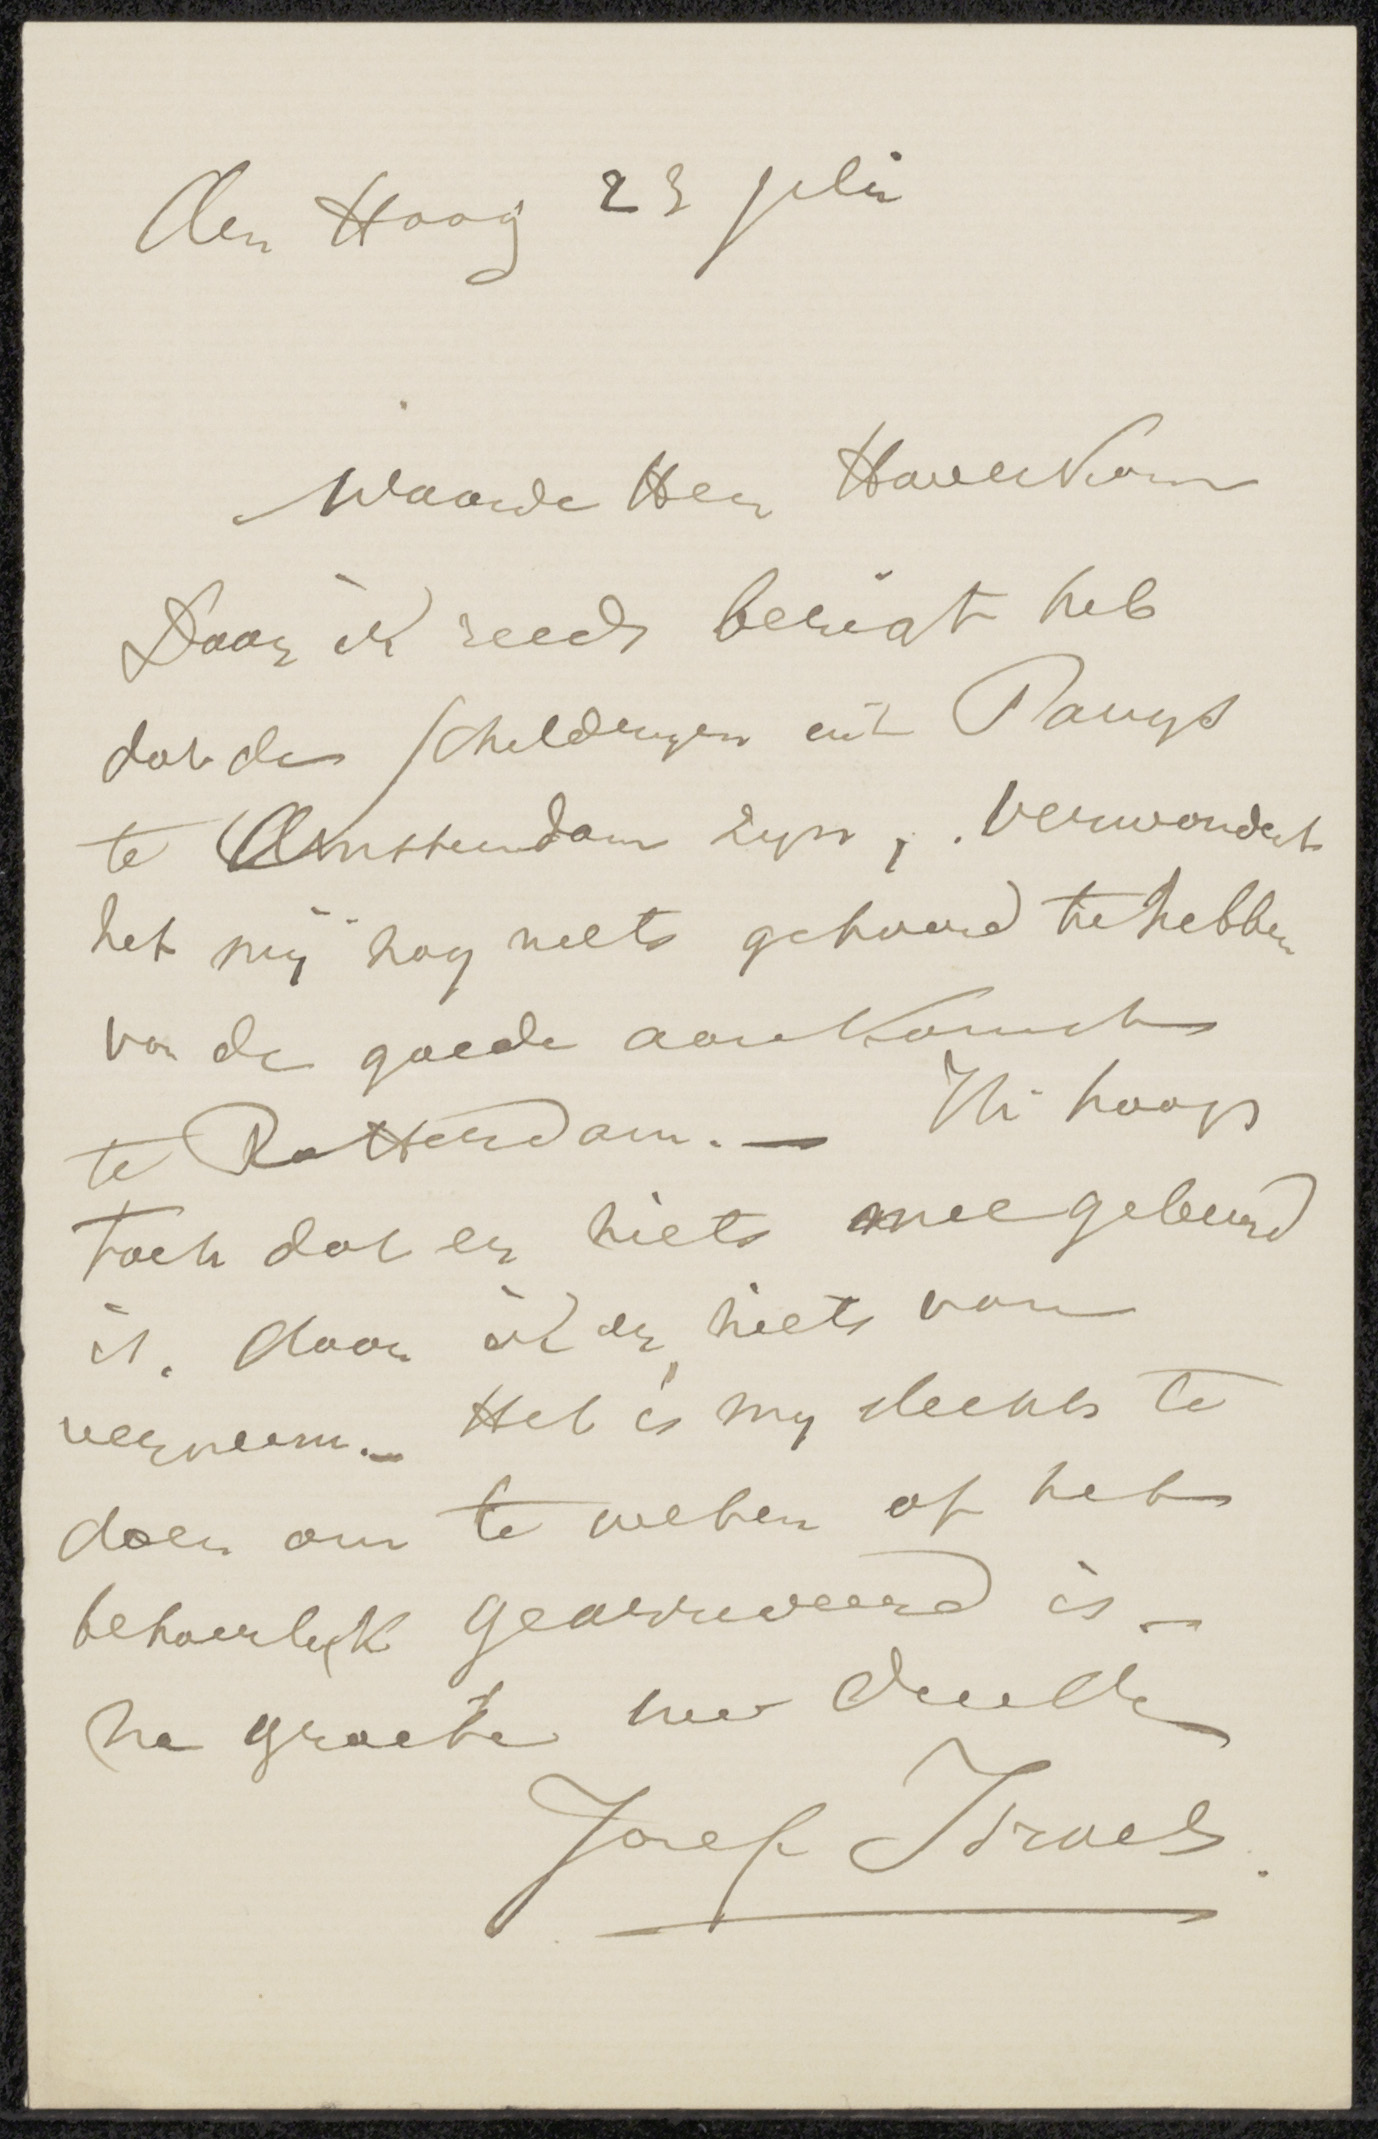 den Haag 23 juli
Waarde Heer Haverkorn
Daar ik reeds berigt heb
dat de Schilderyen uit Parys
te Amsterdam zyn, verwondert
het mij nog niets gehoord te hebben
van de goede aankomst
te Rotterdam. — Ik hoop
toch dat er niets mee gebeurd
is. daar ik er niets van
verneem. — Het is my slechts te
doen om te weten of het
behoorlyk gearriveerd is —
na groete uw
Jozef Israels.